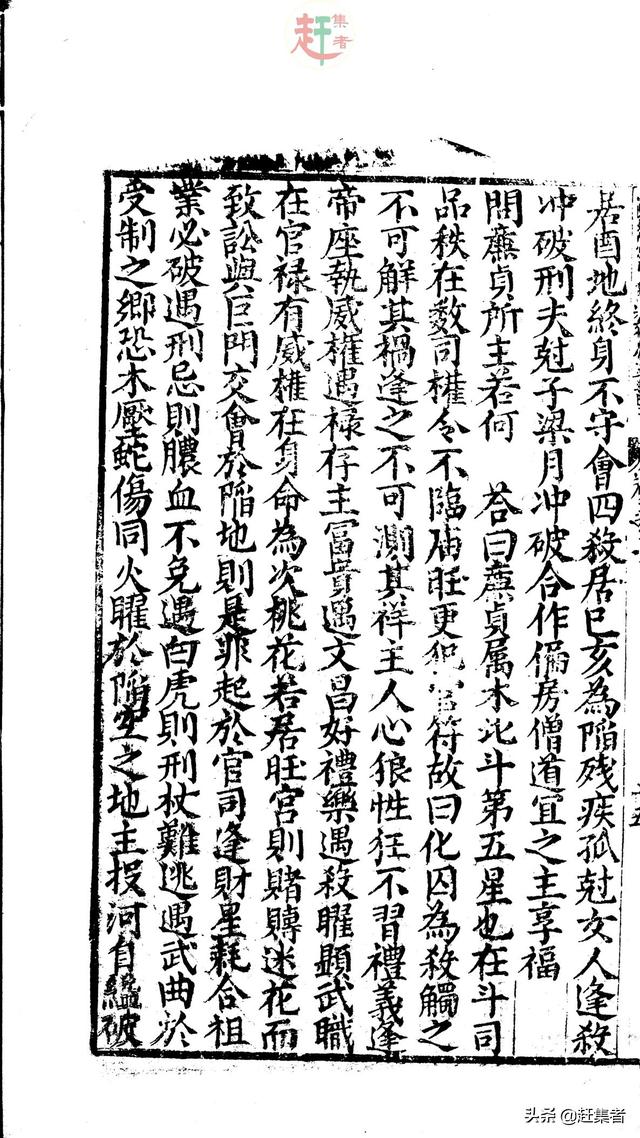 赶集者
居酉地終身不守會四殺居巳亥為陷残疾孤尅女人逢殺
冲破刑夫尅子梁月冲破合作偏房僧道宜之主享福
問廉貞所主若何　荅曰廉貞属木北斗第五星也在斗司
品秩在数司權令不臨庙旺更犯官符故曰化囚為殺觸之
不可解其禍逢之不可測其祥主人心狼性狂不習禮義逢
帝座執威權遇禄存主冨貴遇文昌好禮樂遇殺曜顯武職
在官禄有威權在身命為次桃花若居旺宮則賭賻迷花而
致訟與巨門交會於陥地則是非起於官司逢財星耗合祖
業必破遇刑忌則膿血不免遇白虎則刑杖難逃遇武曲於
受制之鄉恐木壓蛇傷同火曜於陥空之地主投河自縊破
头条 @赶集者